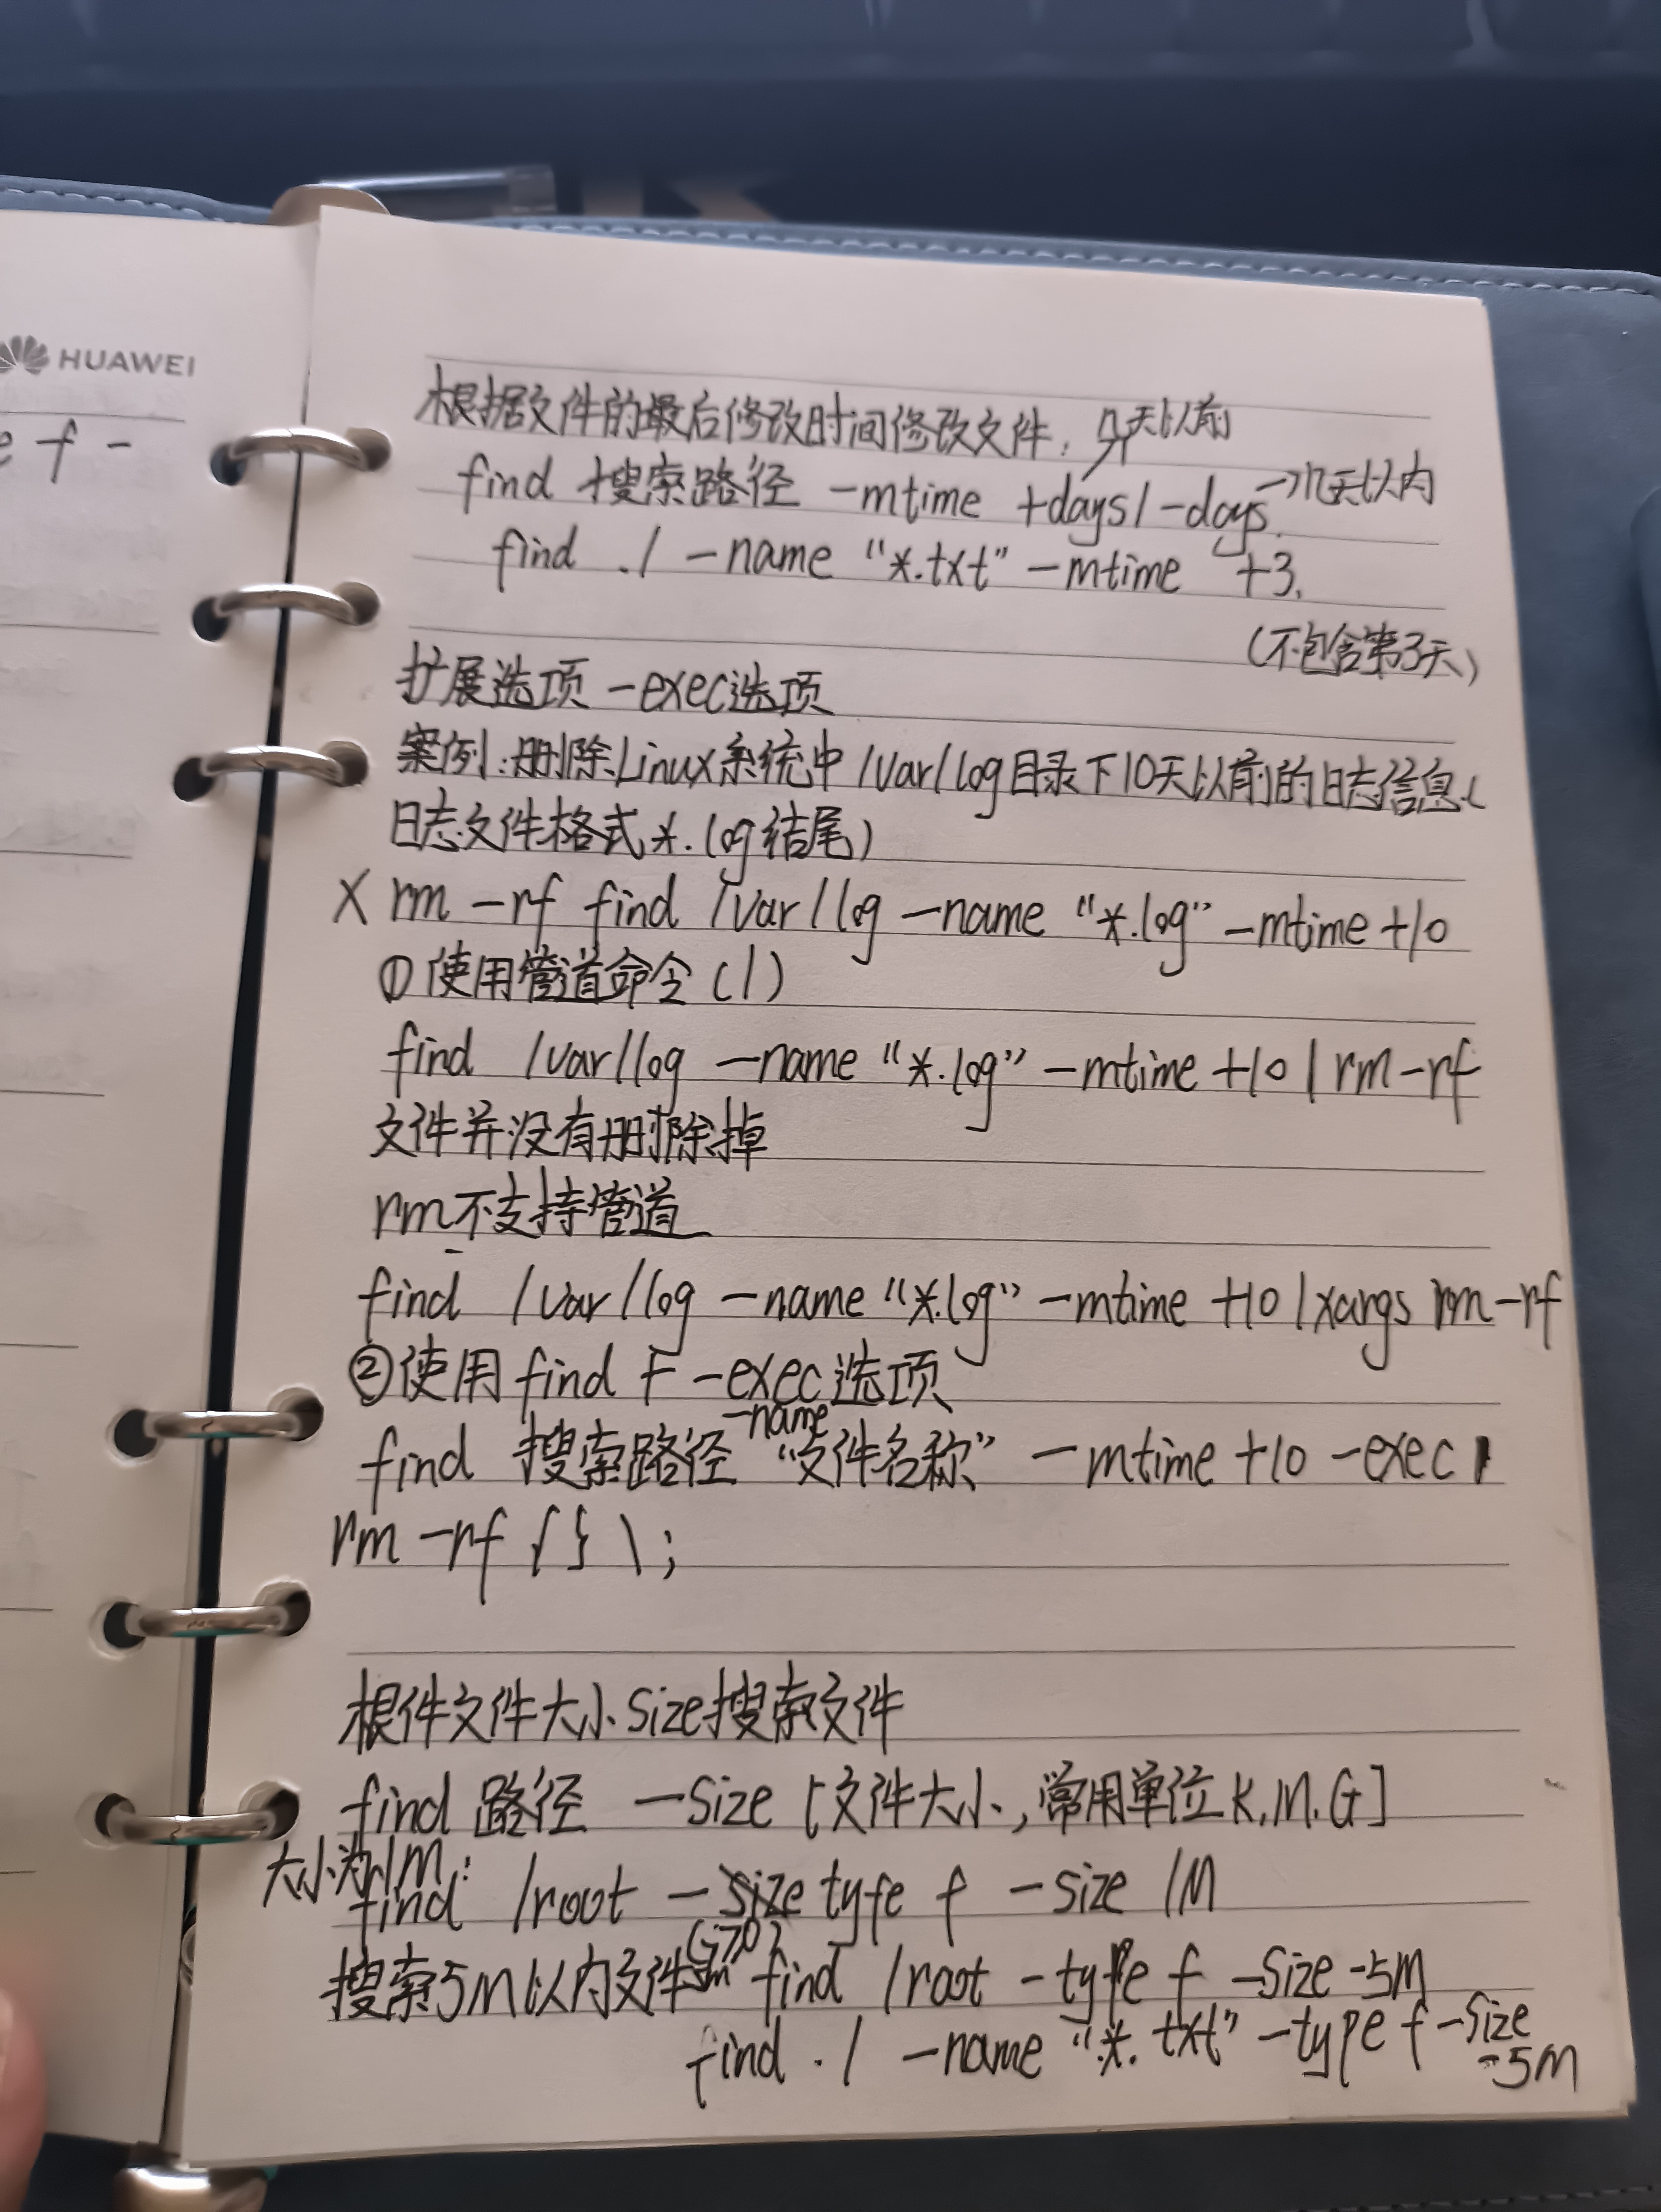 HUAWEI
e f -
根据文件的最后修改时间修改文件, 几天以前
find 搜索路径 -mtime +days/-days →几天以内
find ./ -name "*.txt" -mtime +3.
(不包含第3天)
扩展选项 -exec选项
案例:删除Linux系统中/var/log目录下10天以前的日志信息(
日志文件格式*.log结尾)
X rm -rf find /var/log -name "*.log" -mtime +10
①使用管道命令(|)
find /var/log -name "*.log" -mtime +10 | rm -rf
文件并没有删除掉
rm不支持管道
find /var/log -name "*.log" -mtime +10 |xargs rm -rf
②使用find F -exec选项
find 搜索路径 -name "文件名称" -mtime +10 -exec
rm -rf {} \;
根件文件大小size搜索文件
find 路径 -size [文件大小,常用单位K.M.G]
大小为1M:
find /root - type f -size 1M
搜索5M以内文件 find /root -type f -size -5M
find ./ -name "*.txt" -type f -size
-5M